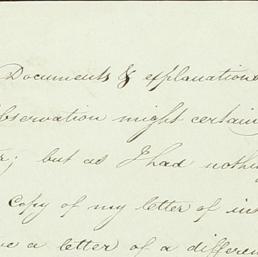 Documents & explanation
bservation might certain
r; but as I had nothi
copy of my letter of ins
e a letter of a differen